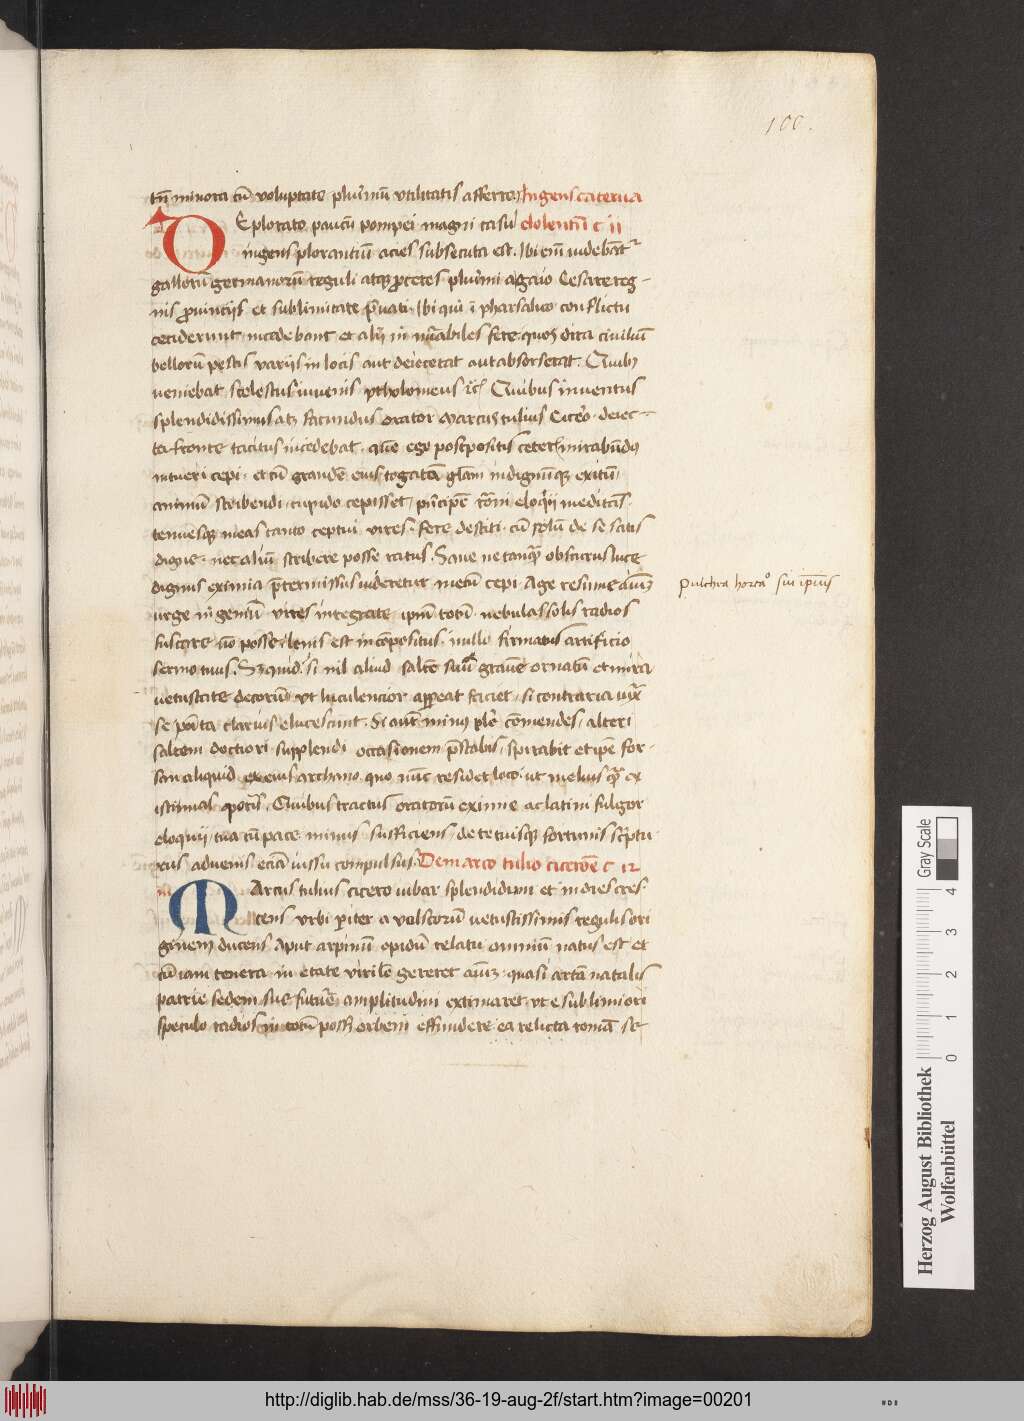 100.
tñ minora cũ voluptate plurimũ vtilitatis afferre Ingens caterua
DEplorato paucis pompei magni casu dolentiũ c ii
ingens plorantiũ acies subsecuta est. Ibi em̃ videbat̃
gallorũ germanorũ reguli atqz proceres plurimi a gaio Cesare reg-
nis prouincijs et sublimitate p̃uati Ibi qui ĩ pharsalico conflictu
ceciderunt incedebant et alij in mirabiles fere quos dira ciuiliũ
bellorũ pestis varijs in locis aut deiecerat aut absorserat. Quibus
veniebat scelestus iuuenis ptholomeus rc̃ Quibus inuentus
splendidissimus atqz facundus orator Marcus tulius Cicero. deiec-
ta fronte tacitus incedebat. quẽ ego postpositis ceteris mirabũdus
intueri cepi. et cũ grandẽ eius togatã glãm indignũqz exitũ
animũ scribendi cupido cepisset, principẽ rõani eloquij meditans
tenuesqz meas tanto ceptui vires. fere destiti. cũ solũ de se satis
digne. nec aliũ scribere posse ratus. Sane ne tanq̃ obscurus luce
dignus eximia p̃termissus videretur mecũ cepi. Age resume aĩum
vrge ingeniũ vires integrate ipm̃ totũ nebulas solis radios
fuscare nõ posse. lenis est incõpositus. nullo firmatus artificio
sermo tuus. Sz quid. si nil aliud saltẽ suũ grauẽ ornatũ et mira
vetustate decorũ vt luculencior appareat faciet. si contraria iuxta
se posita clarius elucescunt. Si autẽ minus pleno cõmendes, alteri
saltem doctiori supplendi occasionem p̃stabis, spirabit et ipẽ for-
san aliquid ex eius archano quo nũc residet loco. vt melius q̃ ex
istimas poteris. Quibus tractus oratorũ eximie ac latini fulgor
eloquij, tua cũ pace minus sufficiens, de te tuisqz fortunis scriptu-
rus aduenis eciã iussu compulsus. De marco tulio cicerõe c 12
MArcus tulius cicero iubar splendidum et in dies cres-
cens vrbi pariter a volscorũ vetustissimis regulis ori
ginem ducens Aput arpinũ opidũ relatu omniũ natus est et
cũ iam tenera in etate virilẽ gereret aĩum quasi artã natalis
patrie sedem sue future amplitudini extimaret vt e sublimiori
speculo radios in totũ posset orbem effundere ea relicta romã se-
pulchra hortatio sui ipsius
Herzog August Bibliothek
Wolfenbüttel
Gray Scale
0 1 2 3 4
http://diglib.hab.de/mss/36-19-aug-2f/start.htm?image=00201